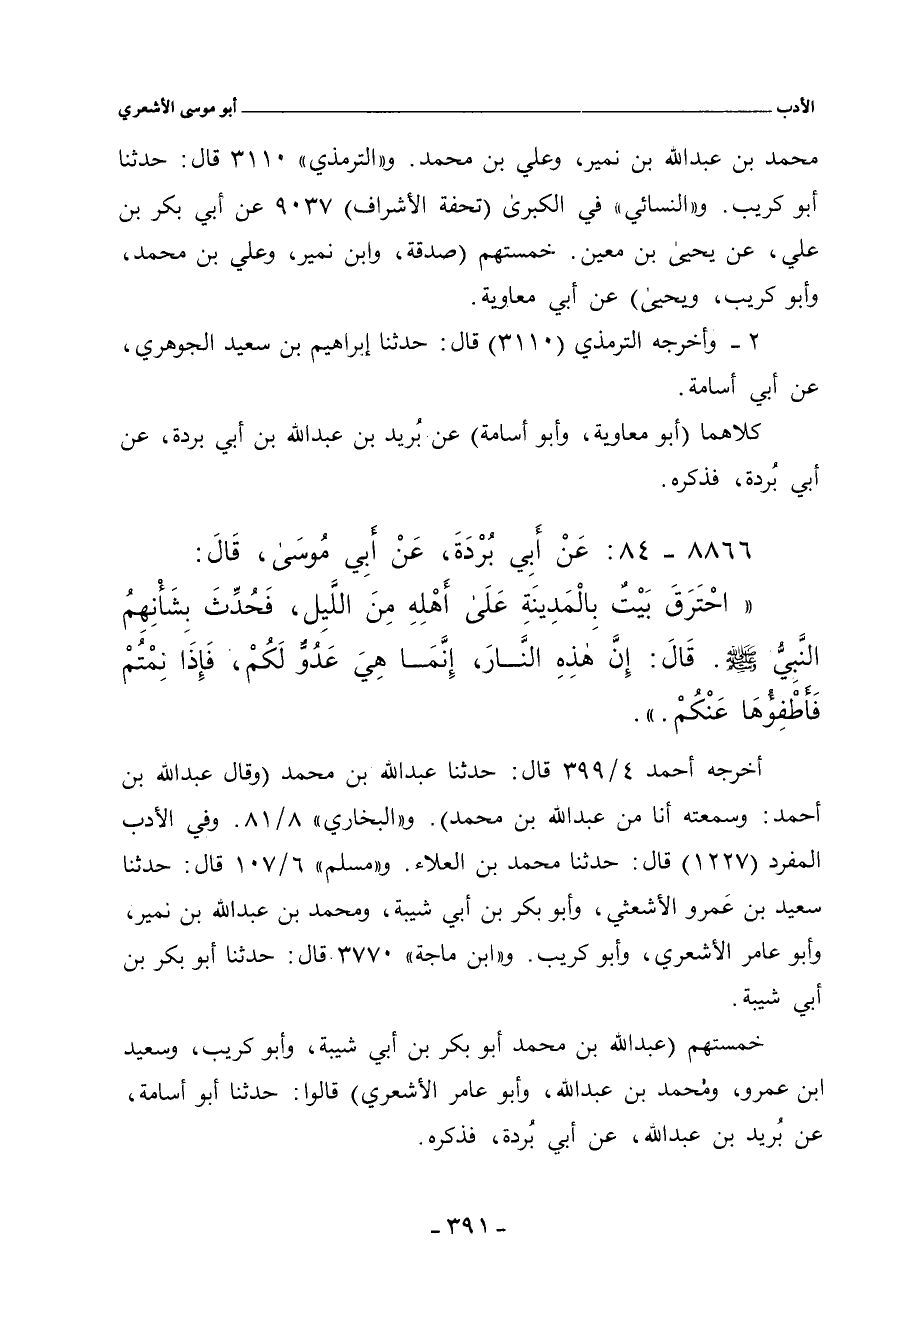 الأدب ــــــــــــــــــــــــــــــ أبو موسى الأشعري
محمد بن عبدالله بن نمير، وعلي بن محمد. و«الترمذي» ٣١١٠ قال: حدثنا
أبو كريب. و«النسائي» في الكبرىٰ (تحفة الأشراف) ٩٠٣٧ عن أبي بكر بن
علي، عن يحيىٰ بن معين. خمستهم (صدقة، وابن نمير، وعلي بن محمد،
وأبو كريب، ويحيىٰ) عن أبي معاوية.
٢ ـ وأخرجه الترمذي (٣١١٠) قال: حدثنا إبراهيم بن سعيد الجوهري،
عن أبي أسامة.
كلاهما (أبو معاوية، وأبو أسامة) عن بُريد بن عبدالله بن أبي بردة، عن
أبي بُردة، فذكره.
٨٨٦٦ ـ ٨٤: عَنْ أَبِي بُرْدَةَ، عَنْ أَبِي مُوسَىٰ، قَالَ:
« احْتَرَقَ بَيْتٌ بِالْمَدِينَةِ عَلَىٰ أَهْلِهِ مِنَ اللَّيلِ، فَحُدِّثَ بِشَأْنِهِمُ
النَّبِيُّ ﷺ. قَالَ: إِنَّ هٰذِهِ النَّـارَ، إِنَّمَـا هِيَ عَدُوٌّ لَكُمْ، فَإِذَا نِمْتُمْ
فَأَطْفِؤُهَا عَنْكُمْ.».
أخرجه أحمد ٣٩٩/٤ قال: حدثنا عبدالله بن محمد (وقال عبدالله بن
أحمد: وسمعته أنا من عبدالله بن محمد). و«البخاري» ٨١/٨. وفي الأدب
المفرد (١٢٢٧) قال: حدثنا محمد بن العلاء. و«مسلم» ١٠٧/٦ قال: حدثنا
سعيد بن عَمرو الأشعثي، وأبو بكر بن أبي شيبة، ومحمد بن عبدالله بن نمير،
وأبو عامر الأشعري، وأبو كريب. و«ابن ماجة» ٣٧٧٠ قال: حدثنا أبو بكر بن
أبي شيبة.
خمستهم (عبدالله بن محمد أبو بكر بن أبي شيبة، وأبو كريب، وسعيد
ابن عمرو، ومُحمد بن عبدالله، وأبو عامر الأشعري) قالوا: حدثنا أبو أسامة،
عن بُريد بن عبدالله، عن أبي بُردة، فذكره.
ـ ٣٩١ ـ